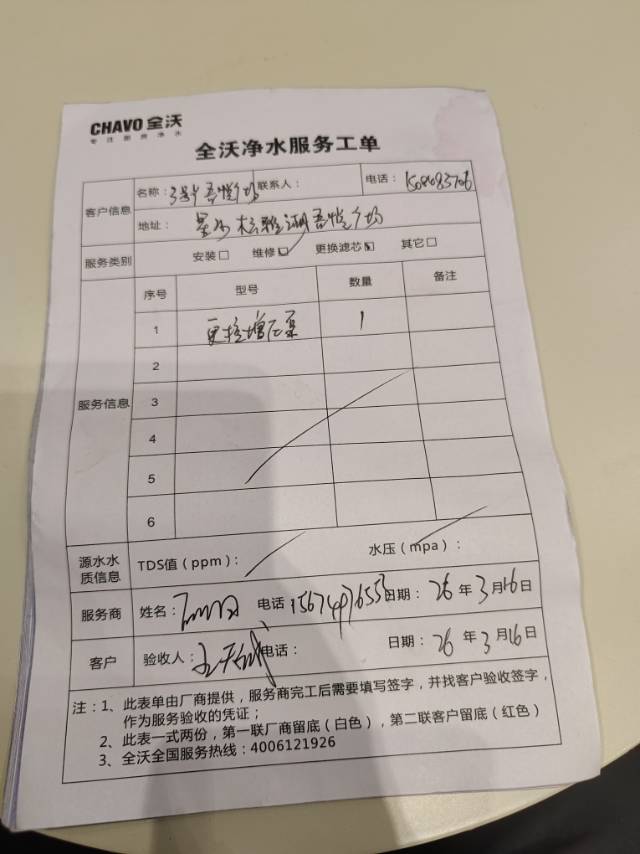 CHAVO 全沃
专注厨房净水
全沃净水服务工单
客户信息
名称： 吾悦广场 联系人： 电话：
地址： 星沙松雅湖吾悦广场
服务类别 安装□ 维修☑ 更换滤芯☑ 其它□
服务信息
序号 型号 数量 备注
1 更换增压泵 1
2
3
4
5
6
源水水质信息 TDS值（ppm）： 水压（mpa）：
服务商 姓名： 电话 日期： 26 年 3 月 16 日
客户 验收人： 电话： 日期： 26 年 3 月 16 日
注：1、此表单由厂商提供，服务商完工后需要填写签字，并找客户验收签字，
作为服务验收的凭证；
2、此表一式两份，第一联厂商留底（白色），第二联客户留底（红色）
3、全沃全国服务热线：4006121926